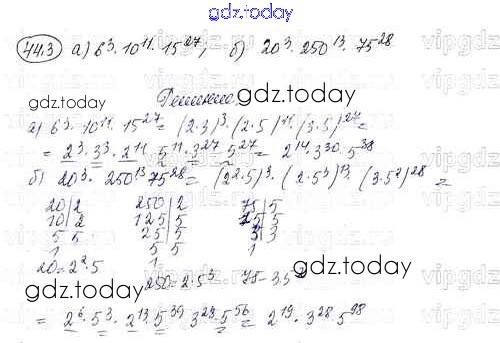 gdz.today
44.3 а) 6³·10¹¹·15²⁷, б) 20³·250¹³·75²⁸
gdz.today
Решение.
gdz.today
а) 6³·10¹¹·15²⁷ = (2·3)³·(2·5)¹¹·(3·5)²⁷ =
= 2³·3³·2¹¹·5¹¹·3²⁷·5²⁷ = 2¹⁴·3³⁰·5³⁸
б) 20³·250¹³·75²⁸ = (2²·5)³·(2·5³)¹³·(3·5²)²⁸ =
20|2 250|2 75|5
10|2 125|5 15|5
5|5 25|5 3|3
1 5|5 1
20=2²·5 1
250=2·5³ 75=3·5²
gdz.today
gdz.today
= 2⁶·5³·2¹³·5³⁹·3²⁸·5⁵⁶ = 2¹⁹·3²⁸·5⁹⁸
gdz.today